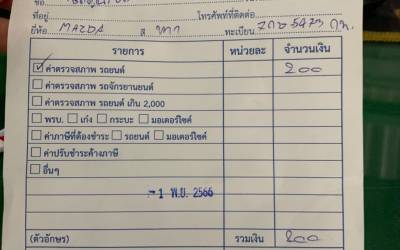 ชื่อ
ที่อยู่ โทรศัพท์ที่ติดต่อ
ยี่ห้อ MAZDA สี เทา ทะเบียน 5473 กท.
รายการ หน่วยละ จำนวนเงิน
ค่าตรวจสภาพ รถยนต์ 200
ค่าตรวจสภาพ รถจักรยานยนต์
ค่าตรวจสภาพ รถยนต์ เกิน 2,000
พรบ. เก๋ง กระบะ มอเตอร์ไซค์
ค่าภาษีที่ต้องชำระ รถยนต์ มอเตอร์ไซค์
ค่าปรับชำระค้างภาษี
อื่นๆ
-1 พ.ย. 2566
(ตัวอักษร) รวมเงิน 200